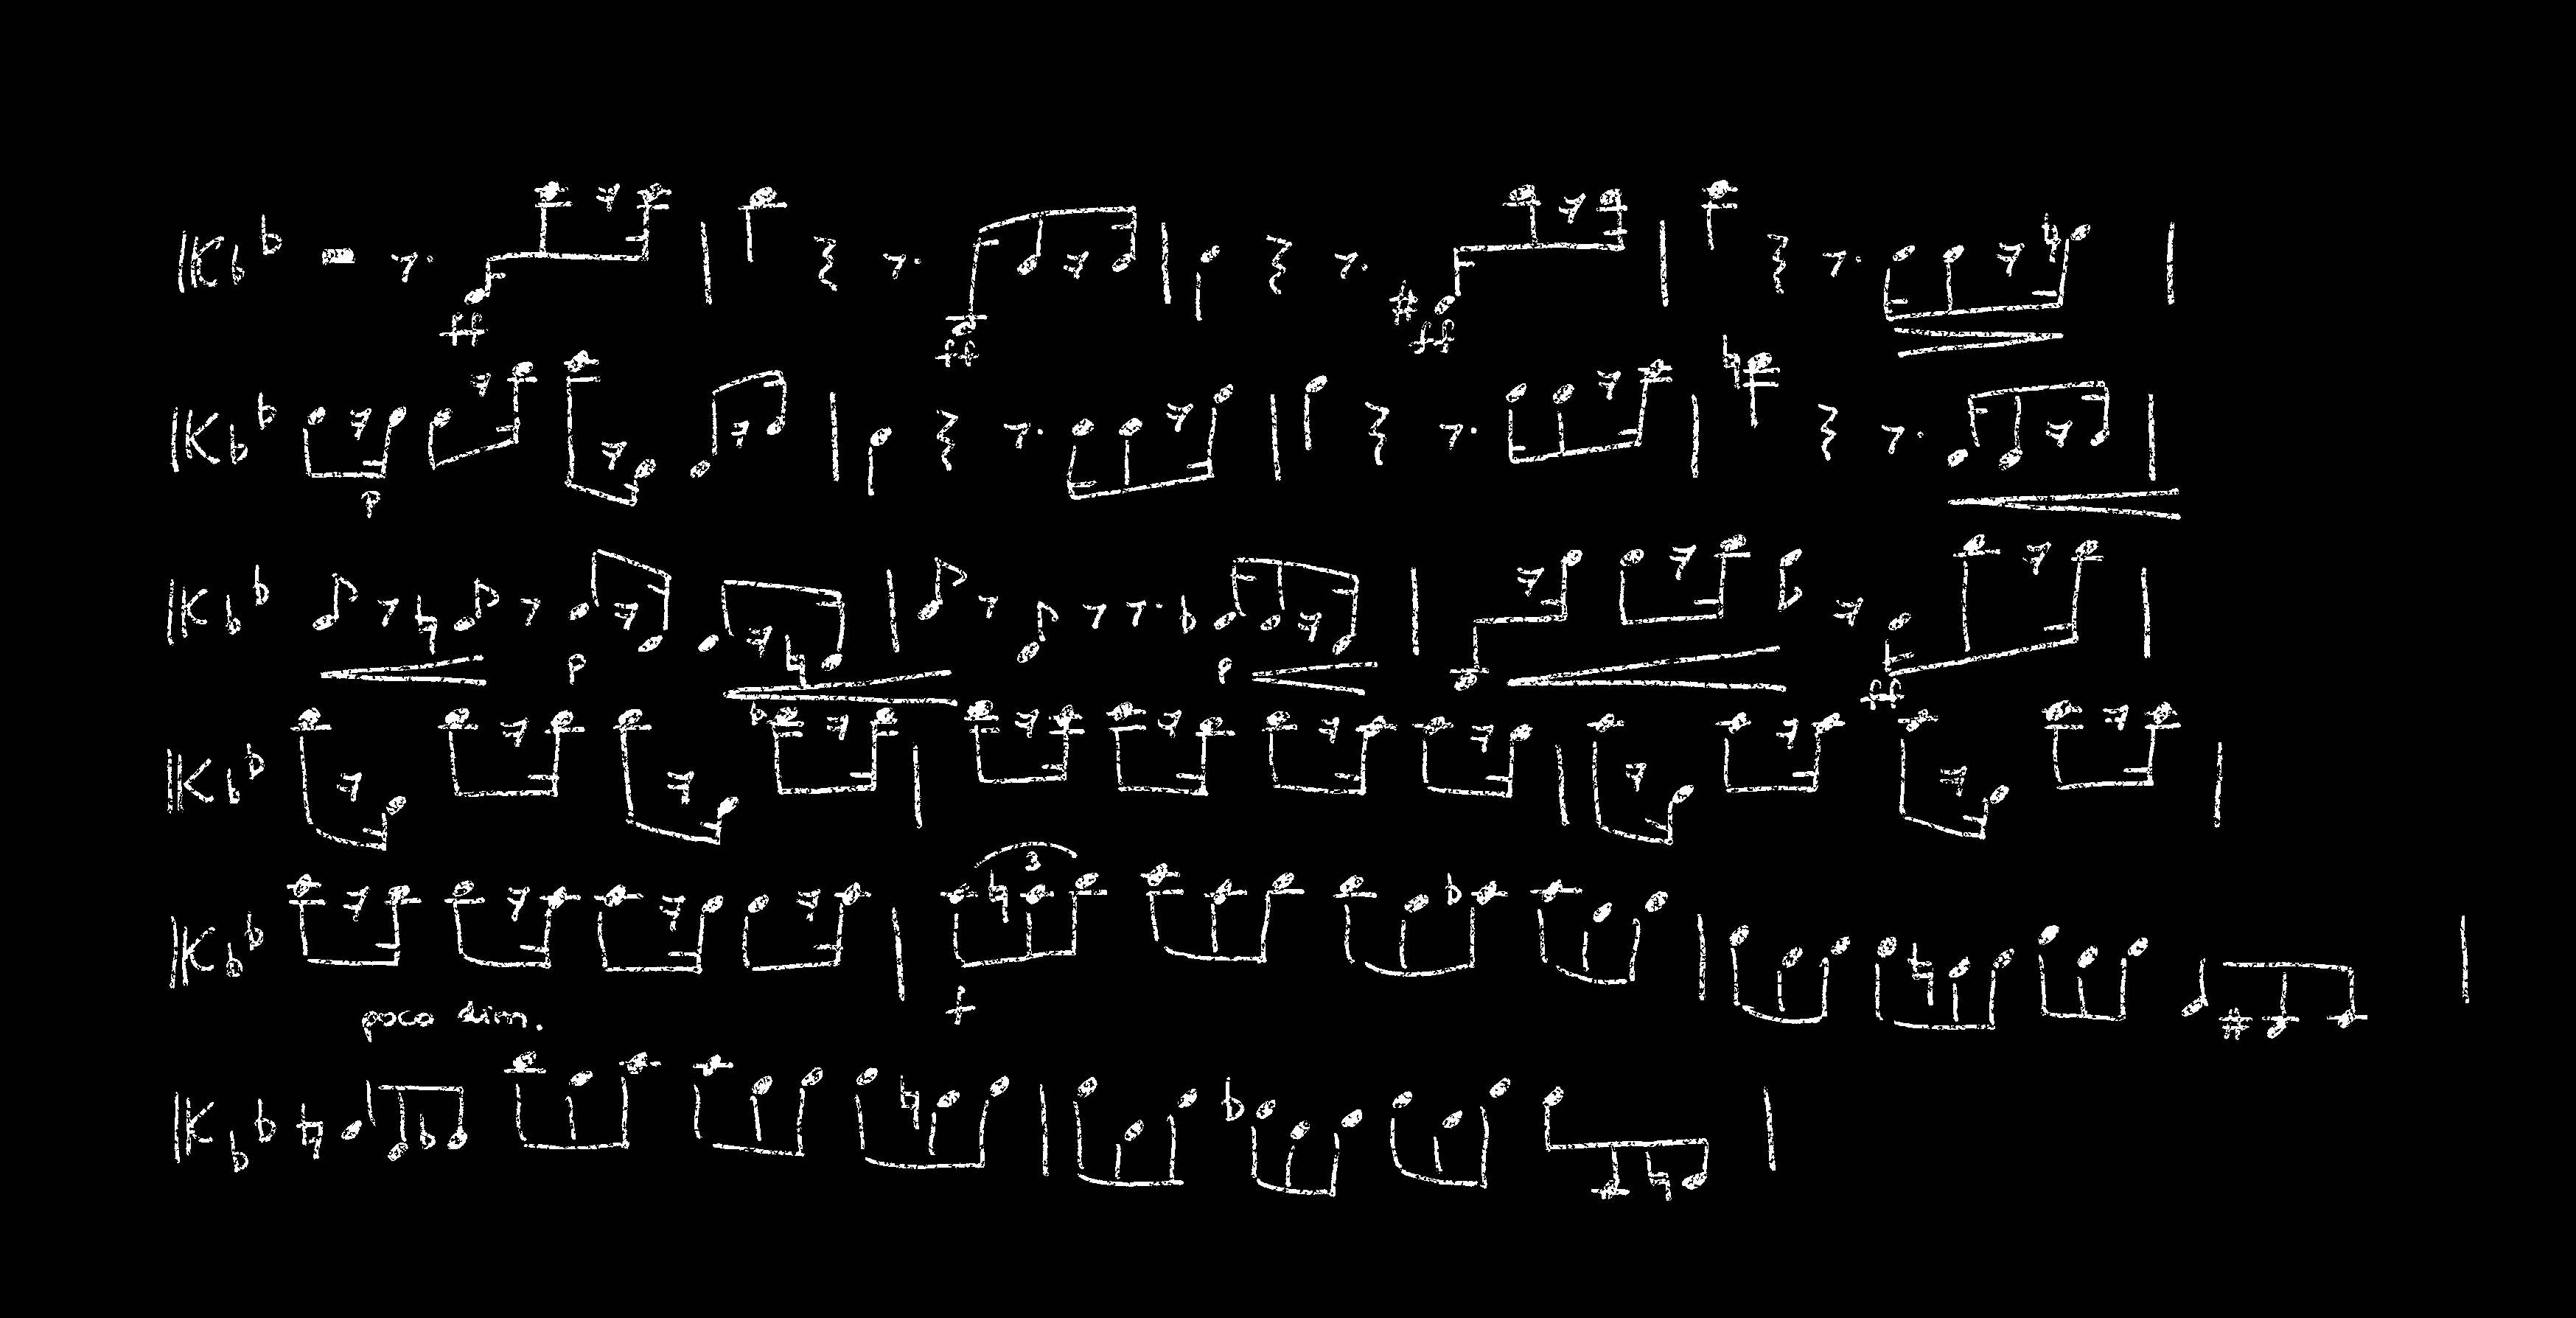 ff ff ff
p
p p ff
3
f
poco dim.